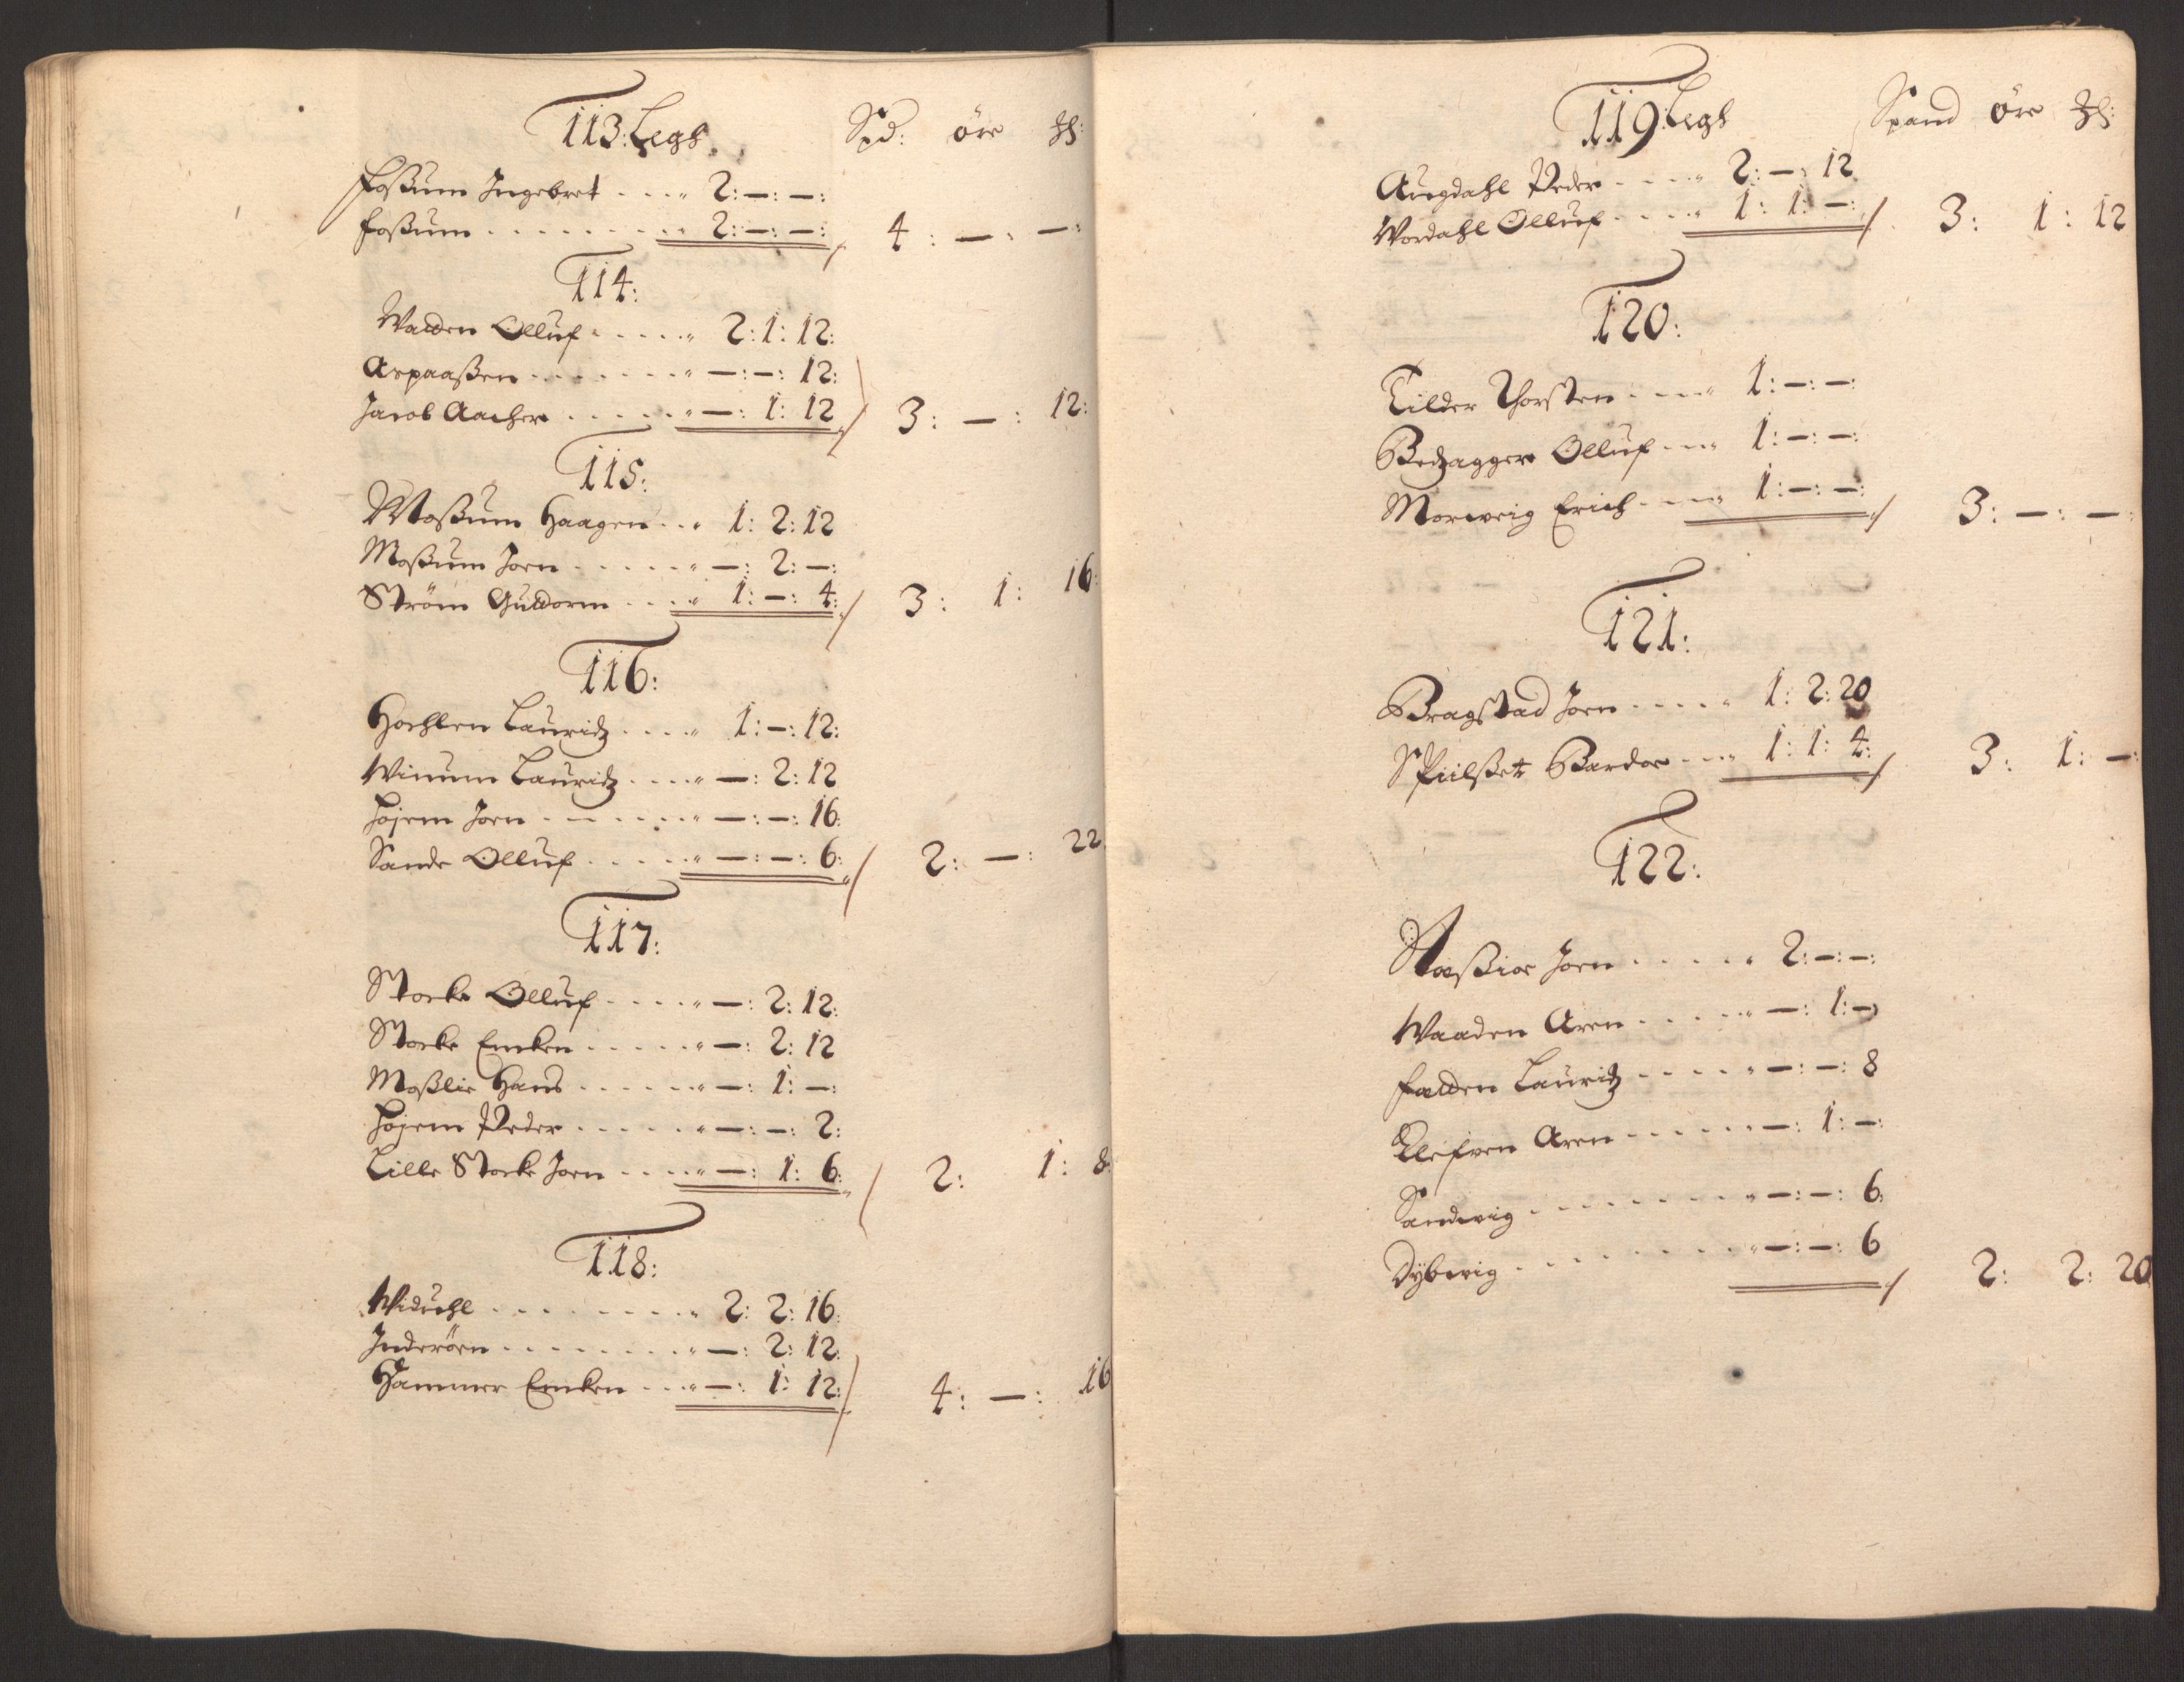 113: Legs. Spd: öre ₰:
Foßum Ingebret . . . . 2:—:—:
Foßum . . . . . . . . 2:—:—: / 4:—:—:
114:
Walden Olluf . . . . . 2: 1: 12:
Aspaaßen . . . . . . . —:—: 12:
Jacob Aacher . . . . . —: 1: 12 / 3:—: 12:
115:
Moßum Haagen . . . 1: 2: 12
Moßum Joen . . . . . . —: 2: —:
Ström Guldorm . . . . 1: —: 4: / 3: 1: 16:
116:
Hoehlen Lauridz . . . . 1: —: 12:
Winum Lauridz . . . . —: 2: 12
Höjem Joen . . . . . . —:—: 16:
Sande Olluf . . . . . . —:—: 6: / 2: —: 22
117:
Storke Olluf . . . . . —: 2: 12:
Storke Encken . . . . . —: 2: 12
Moßlie Hans . . . . . . —: 1: —:
Höjem Peder . . . . . . —:—: 2:
Lille Storke Joen . . . . —: 1: 6: / 2: 1: 8:
118:
Widuehl . . . . . . . . . 2: 2: 16:
Inderöen . . . . . . . . —: 2: 12:
Hammer Encken . . . . —: 1: 12: / 4: —: 16
119: Legs Spand öre ₰:
Augdahl Peder . . . . . 2: —: 12
Wordahl Olluf . . . . . 1: 1: —: / 3: 1: 12
120:
Tilder Thorsten . . . . 1:—:—:
Bedzagger Olluf . . . 1:—:—:
Morweig Erich . . . . 1:—:—: / 3:—:—:
121:
Bragstad Joen . . . . . 1: 2: 20
Spilßet Bardoe . . . 1: 1: 4: / 3: 1: —:
122:
Joen . . . . . 2:—:—:
Waaden Aren . . . . . —: 1: —
Falden Lauridz . . . . . —:—: 8
Klefven Aren . . . . . . —: 1: —:
Sandwig . . . . . . . . —:—: 6:
Dÿbwig . . . . . . . . . —:—: 6 / 2: 2: 20